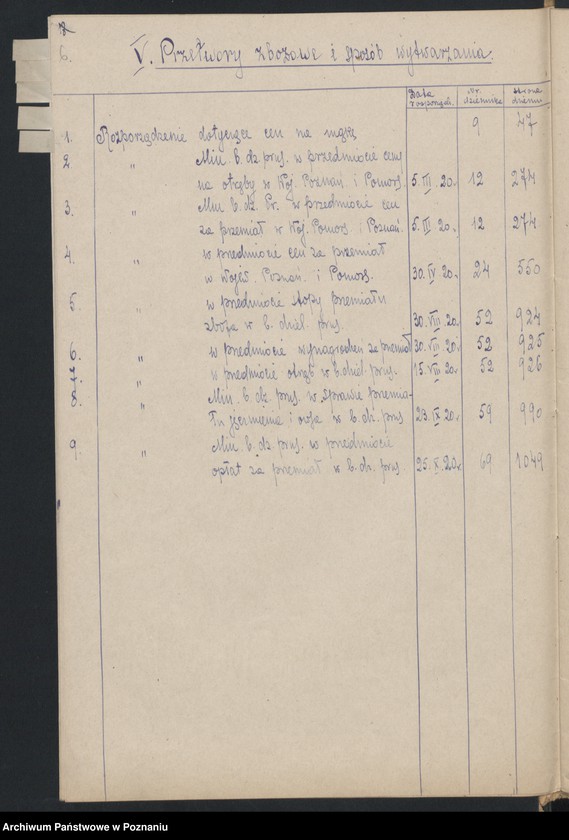 6.
V. Przetwory zbożowe i sposób wytwarzania.
Data rozporządz. Nr. dziennika strona dzienn.
1. Rozporządzenie dotyczące cen na mąkę 9 47
2 " Min. b. dz. prus. w przedmiocie ceny
na otręby w Woj. Poznań. i Pomors. 5. III. 20. 12 274
3. " Min. b. dz. Pr. w przedmiocie cen
za przemiał w Woj. Pomors. i Poznań. 5. III. 20. 12 274
4. " w przedmiocie cen za przemiał
w Wojew. Poznań. i Pomors. 30. IV. 20. 24 550
5. " w przedmiocie stopy przemiału
zboża w b. dziel. prus. 30. VIII. 20. 52 924
6. " w przedmiocie wynagrodzeń za przemiał 30. VIII. 20. 52 925
7. " w przedmiocie otrąb w b. dziel. prus. 15. VIII. 20. 52 926
8. " Min. b. dz. prus. w sprawie przemia-
łu jęczmienia i owsa w b. dz. prus 23. IX. 20. 59 990
9. " Min. b. dz. prus. w przedmiocie
opłat za przemiał w b. dz. prus. 25. X. 20. 69 1049
Archiwum Państwowe w Poznaniu